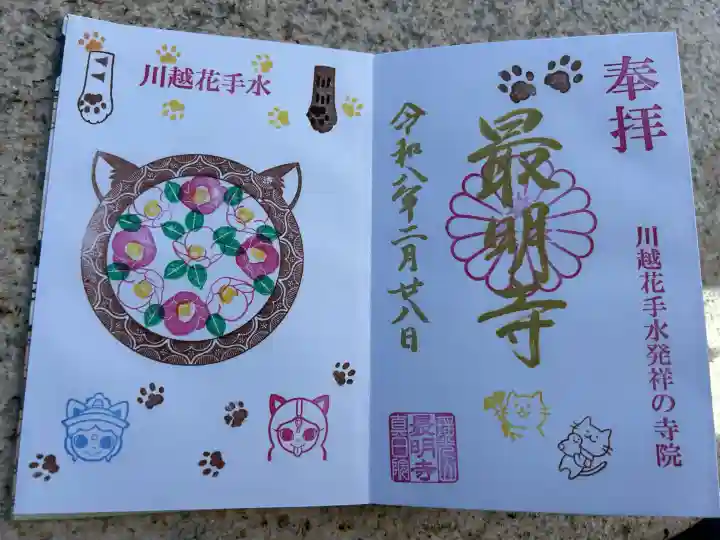 川越花手水
奉拝
最明寺
令和八年二月廿八日
川越花手水発祥の寺院
最明寺